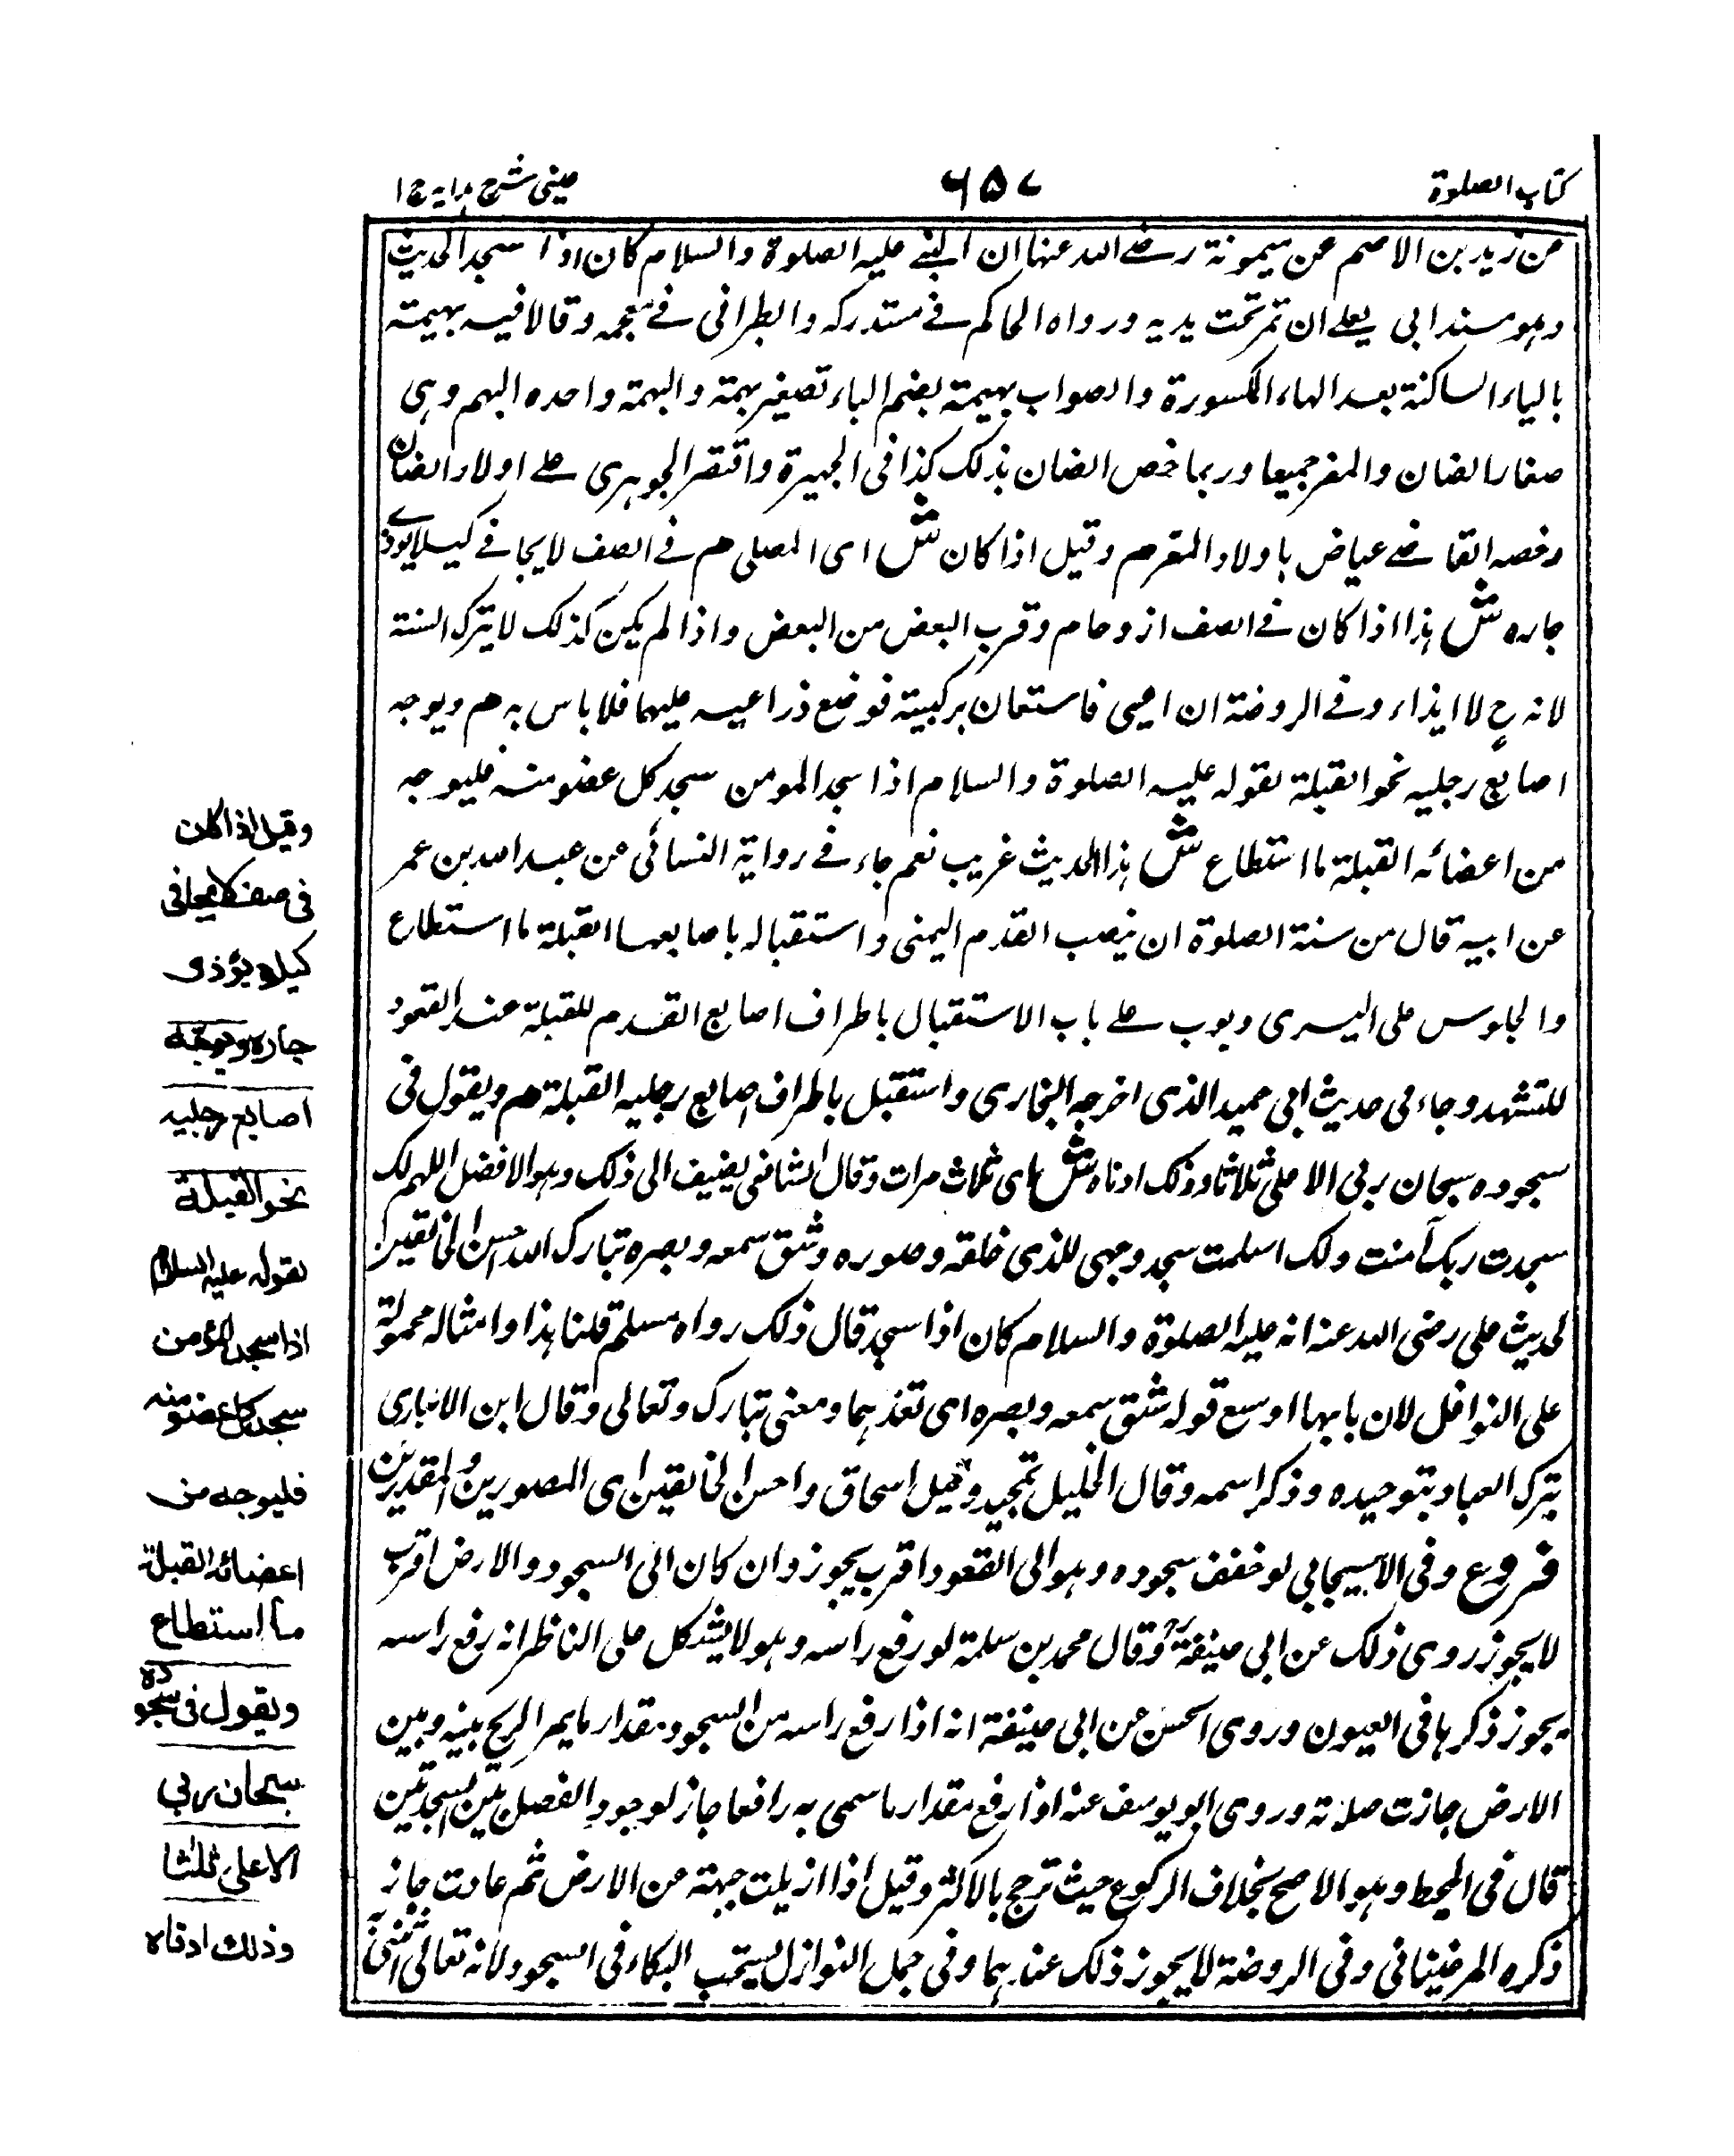 كتاب الصلوة
٦٥٧
عينى شرح هدايه ج ا
عن زيد بن الاصم عن ميمونة رضى الله عنها ان النبى عليه الصلوة والسلام كان اذا سجد الحديث
وهو مسند ابى يعلى ان تمر تحت يديه ورواه الحاكم فى مستدركه والطبرانى فى معجمه وقالا فيه بهيمته
بالياء الساكنة بعد الهاء المكسورة والصواب بهيمة بضم الباء تصغير بهمة والبهمة واحده البهم وهى
صغار الضان والمعز جميعا وربما خص الضان بذلك كذا فى الجمهرة واقتصر الجوهرى على اولاد الضان
وخصه القاضى عياض باولاد المعز م وقيل اذا كان ش اى المصلى م فى الصف لا يجافى كيلا يوذى
جاره ش هذا اذا كان فى الصف ازدحام وقرب البعض من البعض واذا لم يكن كذلك لا يترك السنة
لانه ح لا ايذاء وفى الروضة ان اعيى فاستعان بركبيته فوضع ذراعيه عليهما فلا باس به م ويوجه
اصابع رجليه نحو القبلة لقوله عليه الصلوة والسلام اذا سجد المومن سجد كل عضو منه فليوجه
من اعضائه القبلة ما استطاع ش هذا الحديث غريب نعم جاء فى رواية النسائى عن عبد الله بن عمر
عن ابيه قال من سنة الصلوة ان ينصب القدم اليمنى واستقباله باصابعها القبلة ما استطاع
والجلوس على اليسرى وبوب على باب الاستقبال باطراف اصابع القدم للقبلة عند القعود
للتشهد وجاء فى حديث ابى حميد الذى اخرجه البخارى واستقبل باطراف اصابع رجليه القبلة م ويقول فى
سجوده سبحان ربى الاعلى ثلاثا وذلك ادناه ش اى ثلاث مرات وقال الشافعى يضيف الى ذلك وهو الافضل اللهم لك
سجدت وبك آمنت ولك اسلمت سجد وجهى للذى خلقه وصوره وشق سمعه وبصره تبارك الله احسن الخالقين
لحديث على رضى الله عنه انه عليه الصلوة والسلام كان اذا سجد قال ذلك رواه مسلم قلنا هذا وامثاله محمولة
على النوافل لان بابها اوسع قوله شق سمعه وبصره اى تفذهما ومعنى تبارك وتعالى وقال ابن الانبارى
تبرك العباد بتوحيده وذكر اسمه وقال الخليل تمجيد وقيل اسحاق واحسن الخالقين اى المصورين والمقدرين
فروع وفى الاسبيجابى لو خفف سجوده وهو الى القعود اقرب يجوز وان كان الى السجود والارض اقرب
لا يجوز روى ذلك عن ابى حنيفة رح وقال محمد بن سلمة لو رفع راسه وهو لا يشكل على الناظر انه رفع راسه
يجوز ذكرها فى العيون وروى الحسن عن ابى حنيفة انه اذا رفع راسه من السجود مقدار ما يمر الريح بينه وبين
الارض جازت صلاته وروى ابو يوسف عنه اذا رفع مقدار ما سمى به رافعا جاز لوجود الفصل بين السجدتين
قال فى المحيط وهو الاصح بخلاف الركوع حيث ترجح بالاكثر وقيل اذا ازيلت جبهته عن الارض ثم عادت جاز
ذكره المرغينانى وفى الروضة لا يجوز ذلك عندهما وفى جمل النوازل يستحب البكاء فى السجود لانه تعالى اثنى
وقيل اذا كان
فى صف لا يجافى
كيلا يؤذى
جاره ويوجه
اصابع رجليه
نحو القبلة
لقوله عليه السلام
اذا سجد المؤمن
سجد كل عضو منه
فليوجه من
اعضائه القبلة
ما استطاع
ويقول فى سجوده
سبحان ربي
الاعلى ثلثا
وذلك ادناه